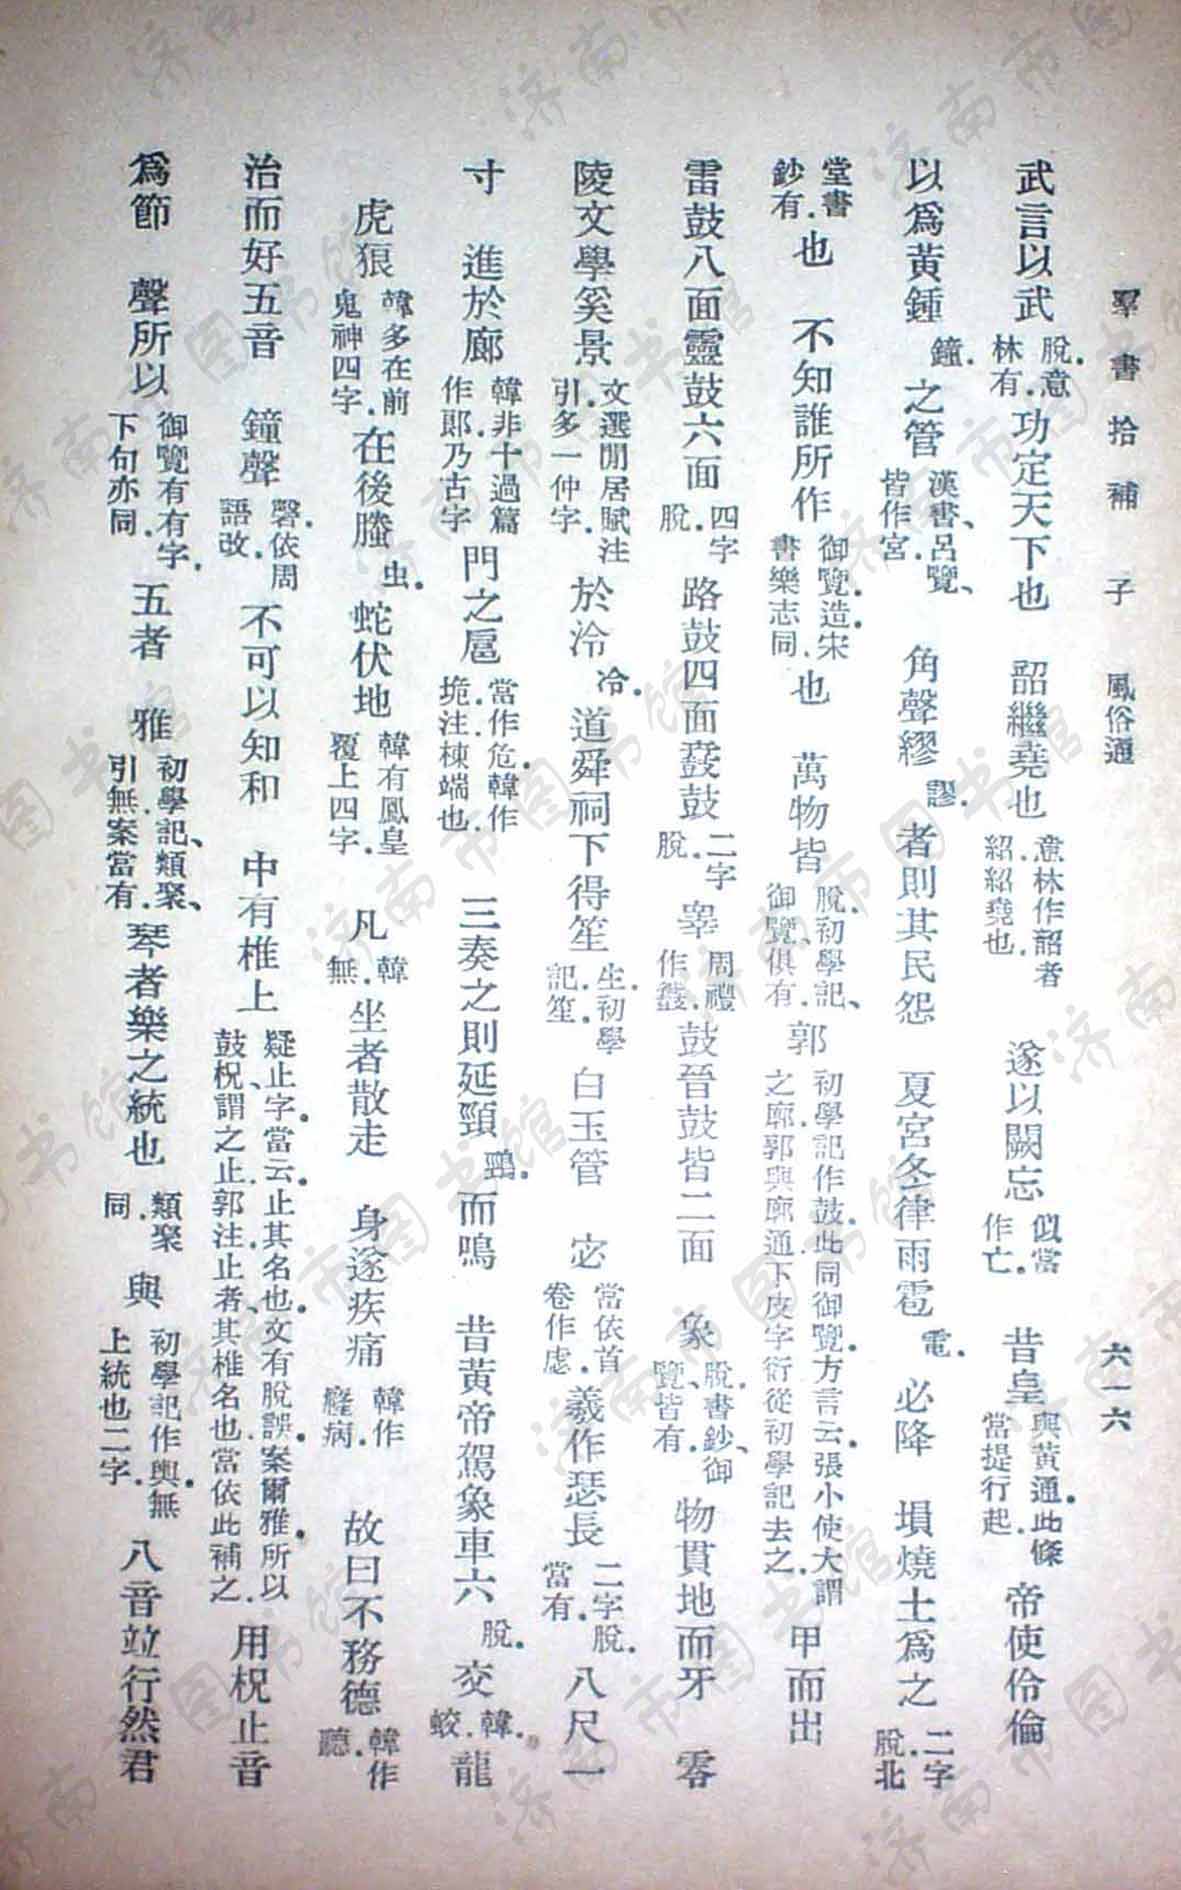 羣書拾補　子　風俗通　六一六
武言以武脫．意林有．功定天下也　韶繼堯也意林作韶者紹．紹堯也．　遂以闕忘似當作亡．　昔皇與黃通．此條當提行起．帝使伶倫
以爲黃鍾鐘．之管漢書、呂覽、皆作宮．　角聲繆謬．者則其民怨　夏宮冬律雨雹電．必降　塤燒土爲之二字脫．北
堂書鈔有．也　不知誰所作御覽．造．宋書樂志同．也　萬物皆脫．初學記、御覽俱有．郭初學記作鼓．此同御覽．方言云．張小使大謂之廓．郭與廓通．下皮字衍．從初學記去之．甲而出
雷鼓八面靈鼓六面四字脫．路鼓四面鼖鼓二字脫．皋周禮作鼛．鼓晉鼓皆二面　象脫．書鈔、御覽皆有．物貫地而牙　零
陵文學奚景文選閒居賦注引．多一仲字．於泠冷．道舜祠下得笙生．初學記．笙．白玉管　宓當依首卷作虙．羲作瑟長二字脫．當有．八尺一
寸　進於廊韓非十過篇作郞．乃古字．門之扈當作危．韓作垝．注．棟端也．　三奏之則延頸鵛．而鳴　昔黃帝駕象車六脫．交韓．蛟．龍
虎狼韓多在前鬼神四字．在後螣虫．蛇伏地韓有鳳皇覆上四字．　凡韓無．坐者散走　身遂疾痛韓作癃病．　故曰不務德韓作聽．
治而好五音　鐘聲磬．依周語改．不可以知和　中有椎上疑止字．當云．止其名也．文有脫誤．案爾雅．所以鼓柷、謂之止．郭注．止者、其椎名也．當依此補之．用柷止音
爲節　聲所以御覽有有字．下句亦同．五者　雅初學記、類聚、引無．案當有．琴者樂之統也類聚同．與初學記作輿．無上統也二字．八音竝行然君